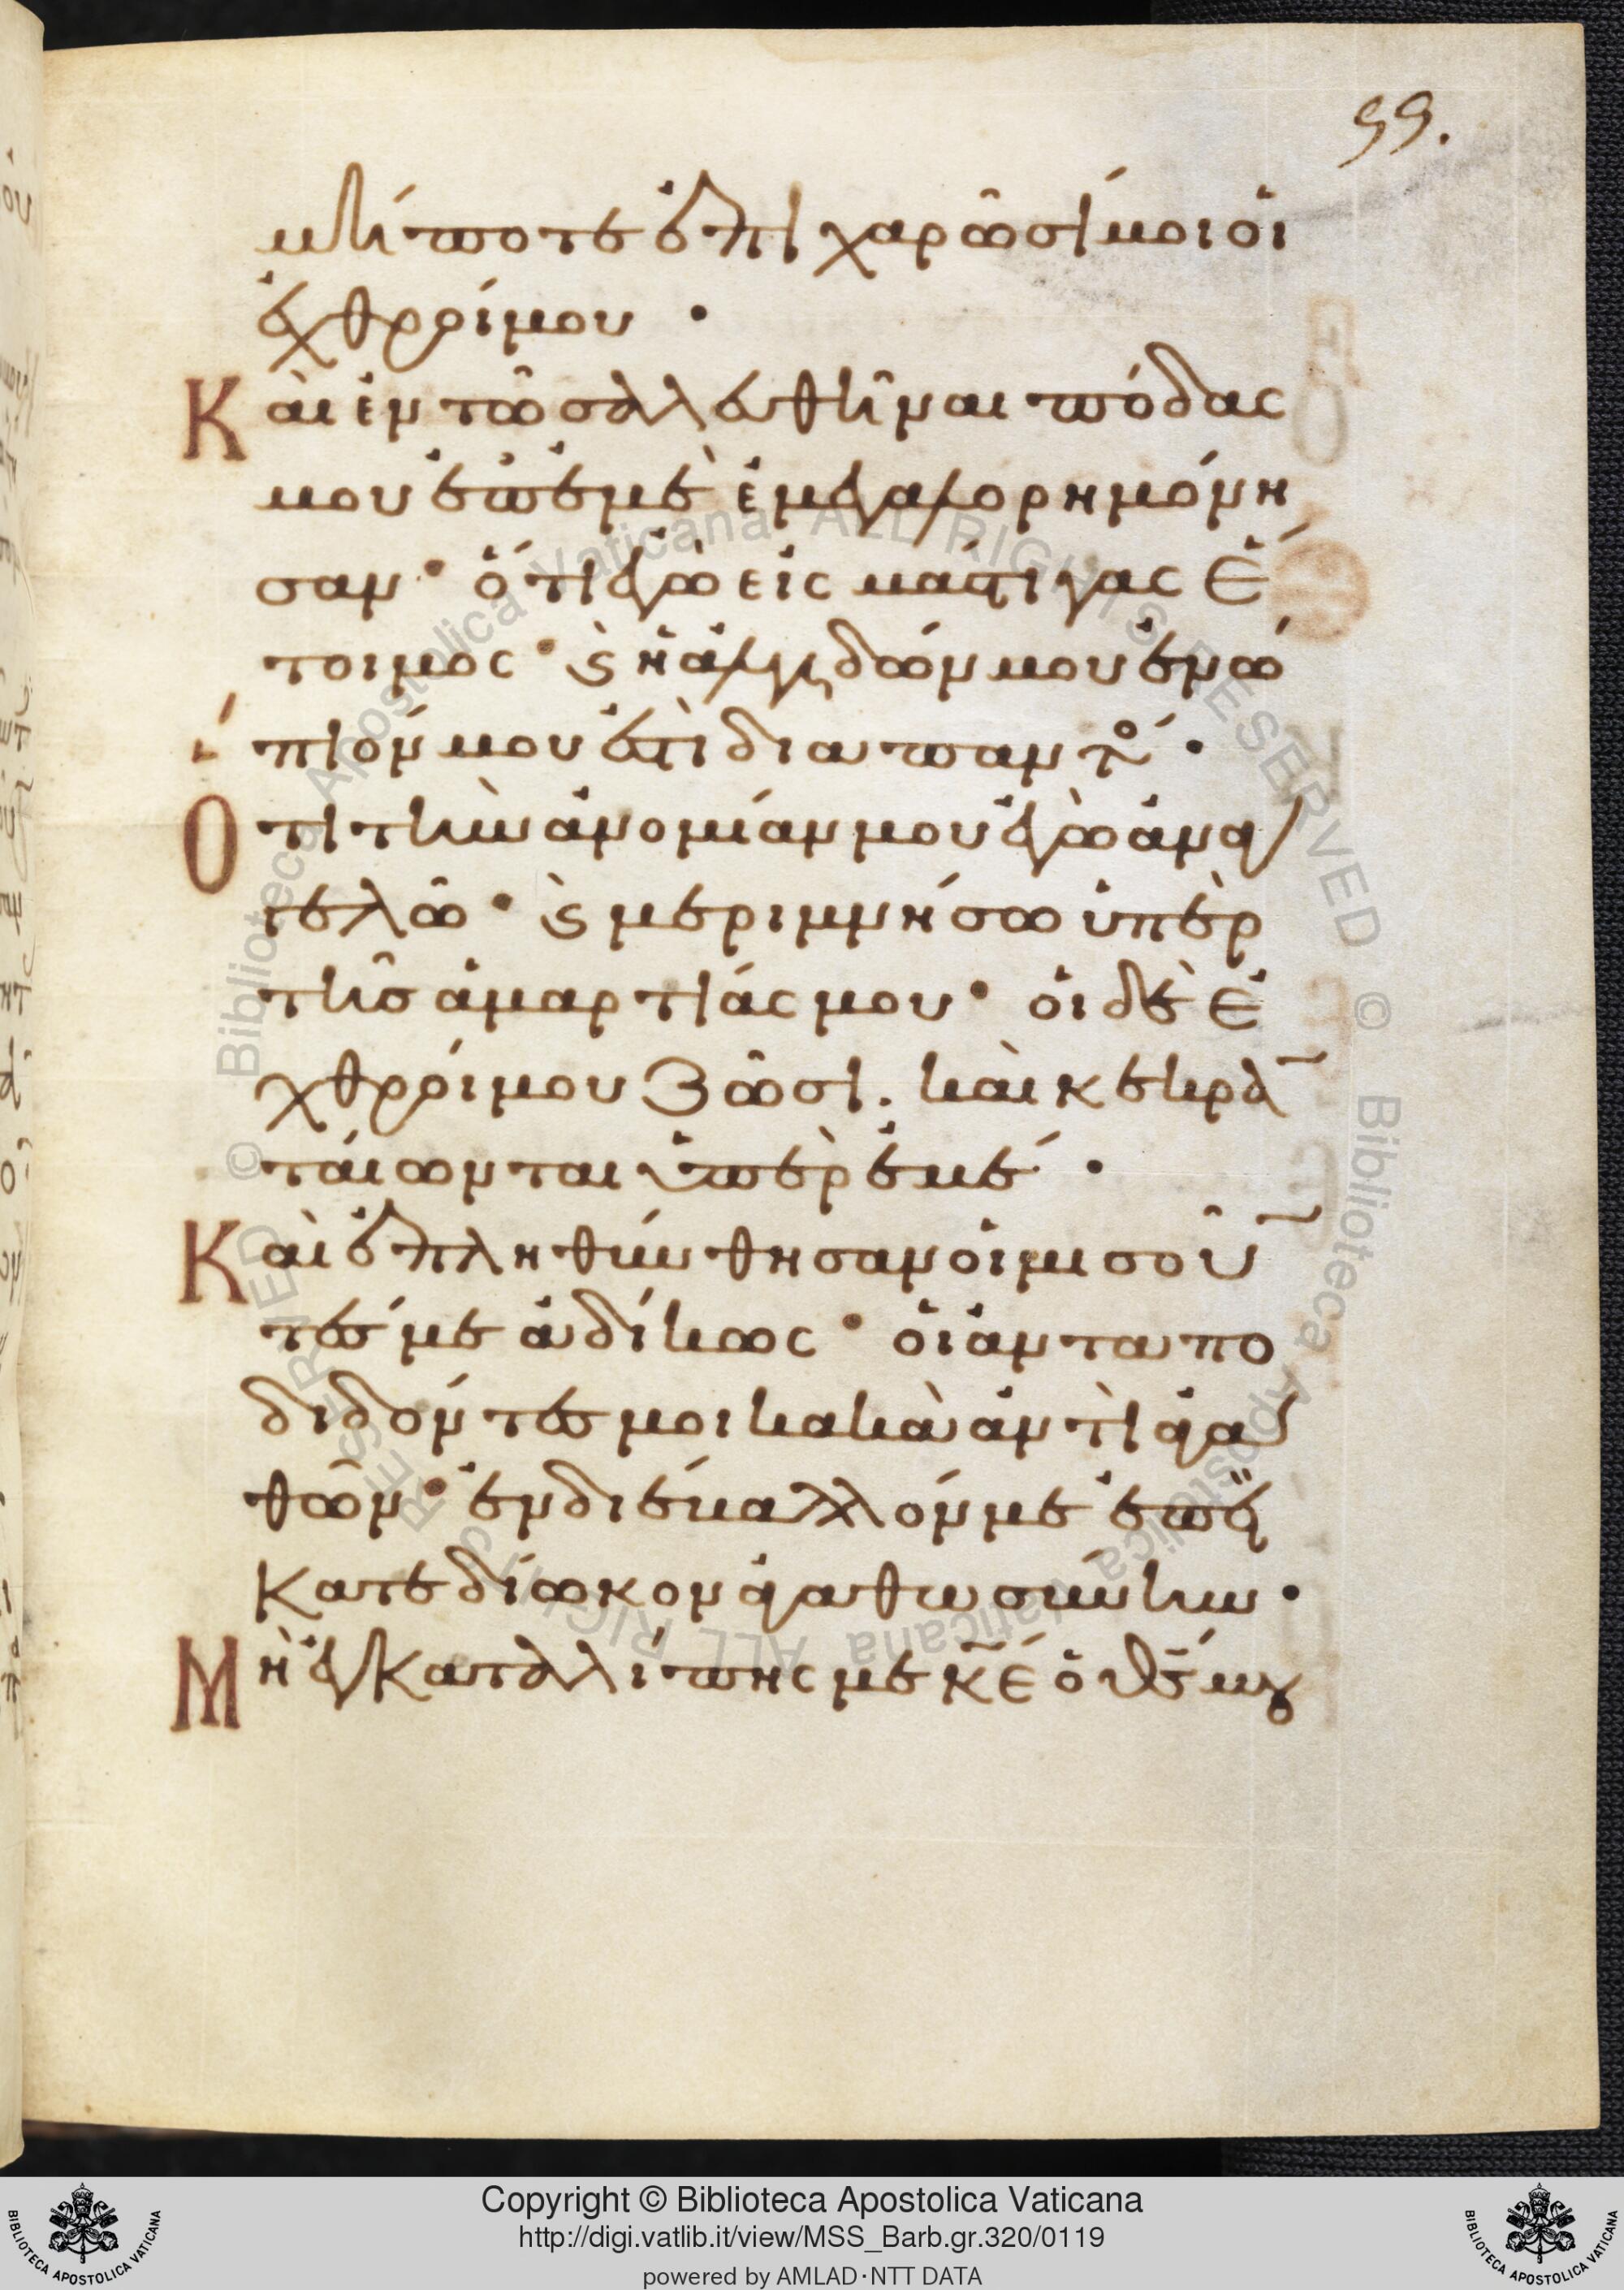 99.
μήποτε ἐπιχαρῶσί μοι οἱ
ἐχθροί μου ·
Καὶ ἐν τῶ σαλευθῆναι πόδας
μου ἐπ' ἐμὲ ἐμεγαλορημόνη
σαν · ὅτι ἐγὼ εἰς μάστιγας ἕ
τοιμος · ϗ ἡ ἀλγηδών μου ἐνώ
πιόν μου ἐστὶ διαπαντό ·
Ὅτι τὴν ἀνομίαν μου ἐγὼ ἀναγ
γελῶ · ϗ μεριμνήσω ὑπὲρ
τῆς ἁμαρτίας μου · οἱ δὲ ἐ
χθροί μου ζῶσι . καὶ κεκρα
ταίωνται ὑπὲρ ἐμέ ·
Καὶ ἐπληθύνθησαν οἱ μισοῦν
τές με ἀδίκως · οἱ ἀνταπο
διδόντες μοι κακὰ ἀντὶ ἀγα
θῶν · ἐνδιέβαλλόν με ἐπεὶ
κατεδίωκον ἀγαθωσύνην ·
Μὴ ἐγκαταλίπης με κ̅ε̅ ὁ θ̅ς̅ μου
Copyright © Biblioteca Apostolica Vaticana
http://digi.vatlib.it/view/MSS_Barb.gr.320/0119
powered by AMLAD·NTT DATA
BIBLIOTECA APOSTOLICA VATICANA
BIBLIOTECA APOSTOLICA VATICANA